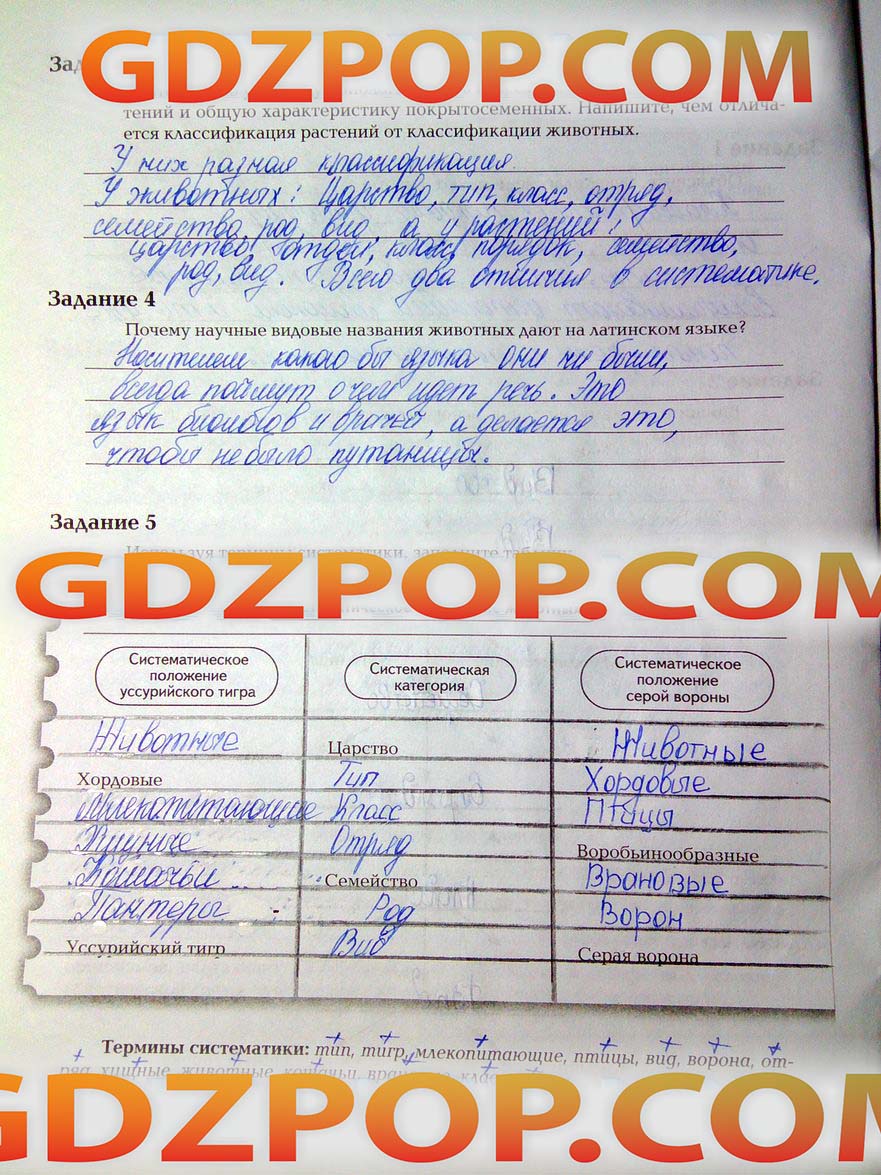 Зад
GDZPOP.COM
тений и общую характеристику покрытосеменных. Напишите, чем отлича-
ется классификация растений от классификации животных.
У них разная классификация.
У животных: Царство, тип, класс, отряд,
семейство, род, вид, а у растений:
царство, отдел, класс, порядок, семейство,
род, вид. Всего два отличия в систематике.
Задание 4
Почему научные видовые названия животных дают на латинском языке?
Носителем какого бы языка они ни были,
всегда поймут о чем идет речь. Это
язык биологов и врачей, а делается это,
чтобы не было путаницы.
Задание 5
Используя термины систематики, заполните таблицу.
GDZPOP.COM
Систематическое положение уссурийского тигра
Систематическая категория
Систематическое положение серой вороны
Животные Царство Животные
Хордовые Тип Хордовые
Млекопитающие Класс Птицы
Хищные Отряд Воробьинообразные
Кошачьи Семейство Врановые
Пантеры Род Ворон
Уссурийский тигр Вид Серая ворона
Термины систематики: тип, тигр, млекопитающие, птицы, вид, ворона, от-
ряд, хищные, животные, кошачьи,
GDZPOP.COM